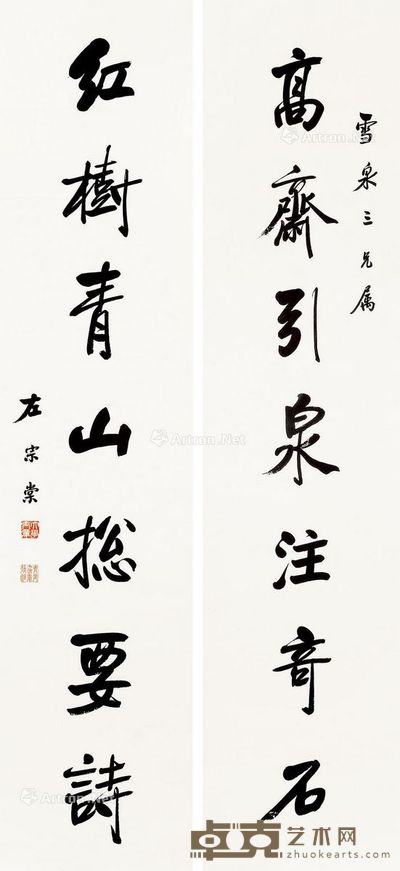 雪泉三兄属
高齋引泉注奇石
红樹青山揔要詩
左宗棠
Artron.Net
Artron.Net
Artron.Net
Artron.Net
卓克艺术网
zhuokearts.com